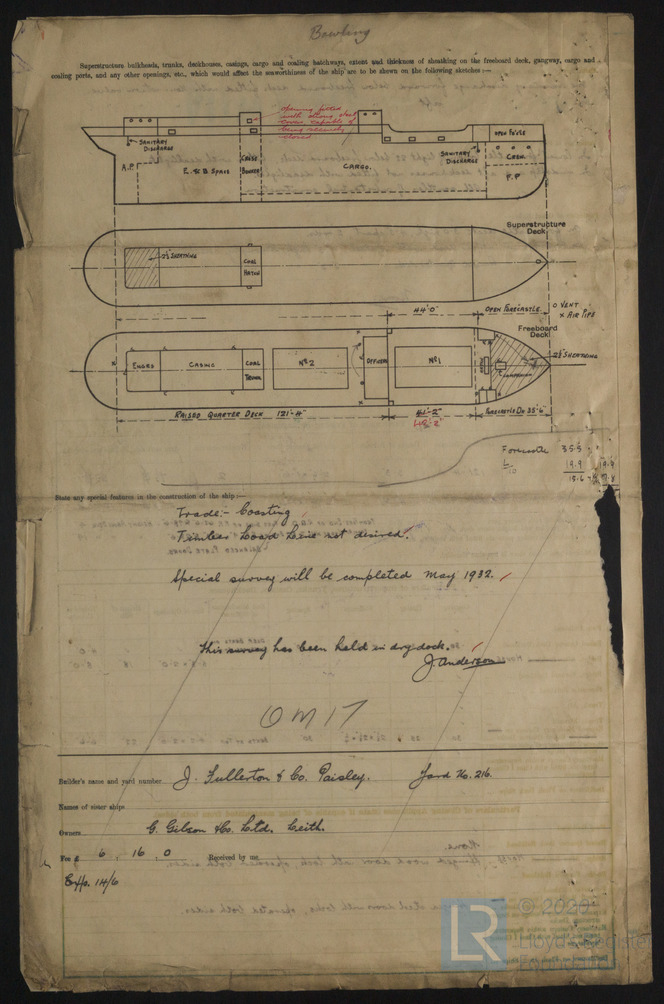 Bowling
Superstructure bulkheads, trunks, deckhouses, casings, cargo and coaling hatchways, extent and thickness of sheathing on the freeboard deck, gangway, cargo and
coaling ports, and any other openings, etc., which would affect the seaworthiness of the ship are to be shown on the following sketches :—
opening fitted
with strong steel
cover capable of
being
closed
SANITARY
DISCHARGE
A.P.
E. & B. SPACE
CROSS
BUNKER
CARGO.
SANITARY
DISCHARGE
OPEN FO'CLE
CREW.
F.P
Superstructure
Deck
2½" SHEATHING
COAL
HATCH
44'0"
OPEN FORECASTLE
O VENT
X AIR PIPE
Freeboard
Deck
ENGRS
CASING
COAL
TRUNK
No 2
OFFICERS
No 1
2½" SHEATHING
RAISED QUARTER DECK 121'-4"
45'-2"
FORECASTLE DK 35'-6"
Forecastle 35.5
19.9
19.9
State any special features in the construction of the ship :—
Trade:- Coasting
Timber Load Line not desired.
Special survey will be completed May 1932.
This survey has been held in dry dock.
J. Anderson
Builder's name and yard number J. Fullerton & Co. Paisley. Yard No. 216.
Names of sister ships
Owners G. Gibson & Co. Ltd. Leith.
Fee £ 6 . 16 . 0 Received by me
Exps. 14/6
LR © 2020
Lloyd's Register
Foundation